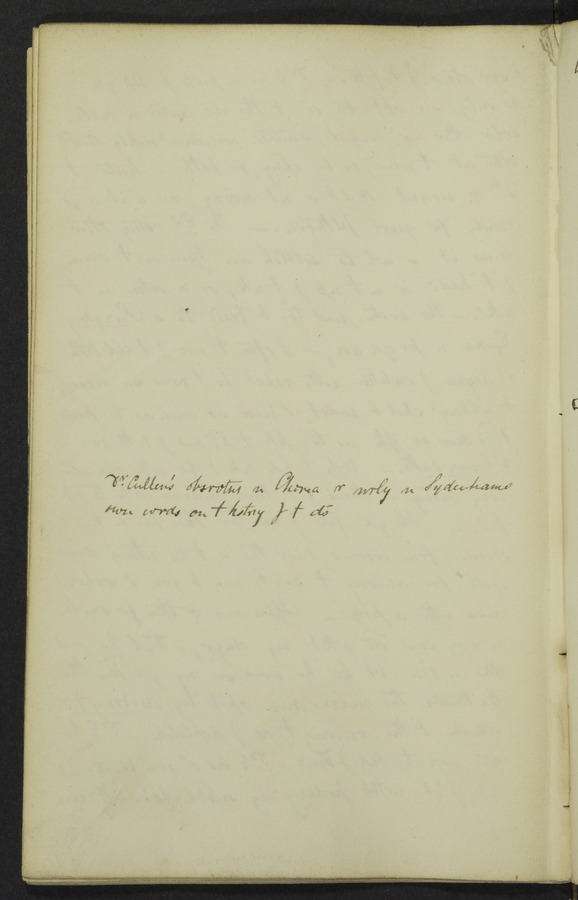 Dr. Cullen's obsrotns n Chorea r nrly n Sydenhams
own words on t hstry f t ds